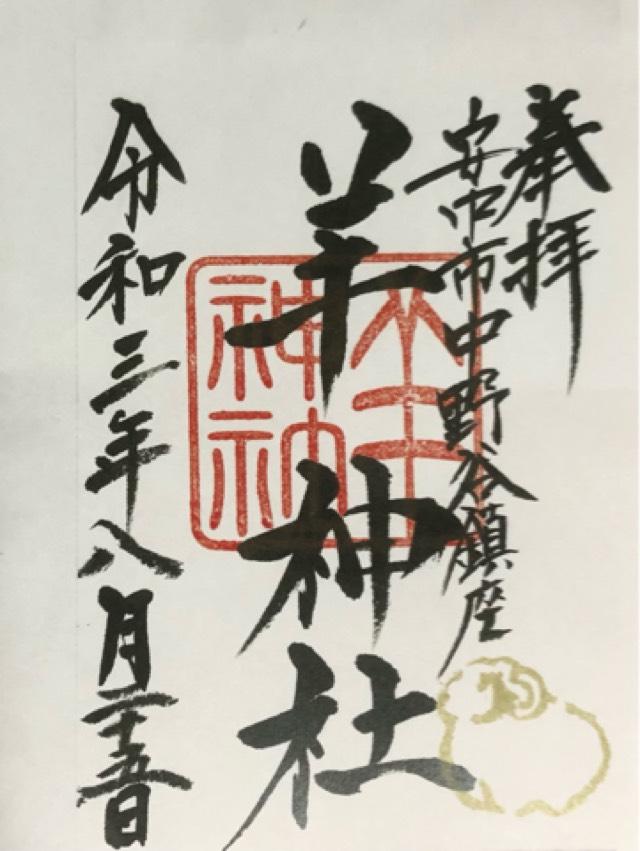 奉拝
安中市中野谷鎮座
羊神社
令和三年八月二十五日